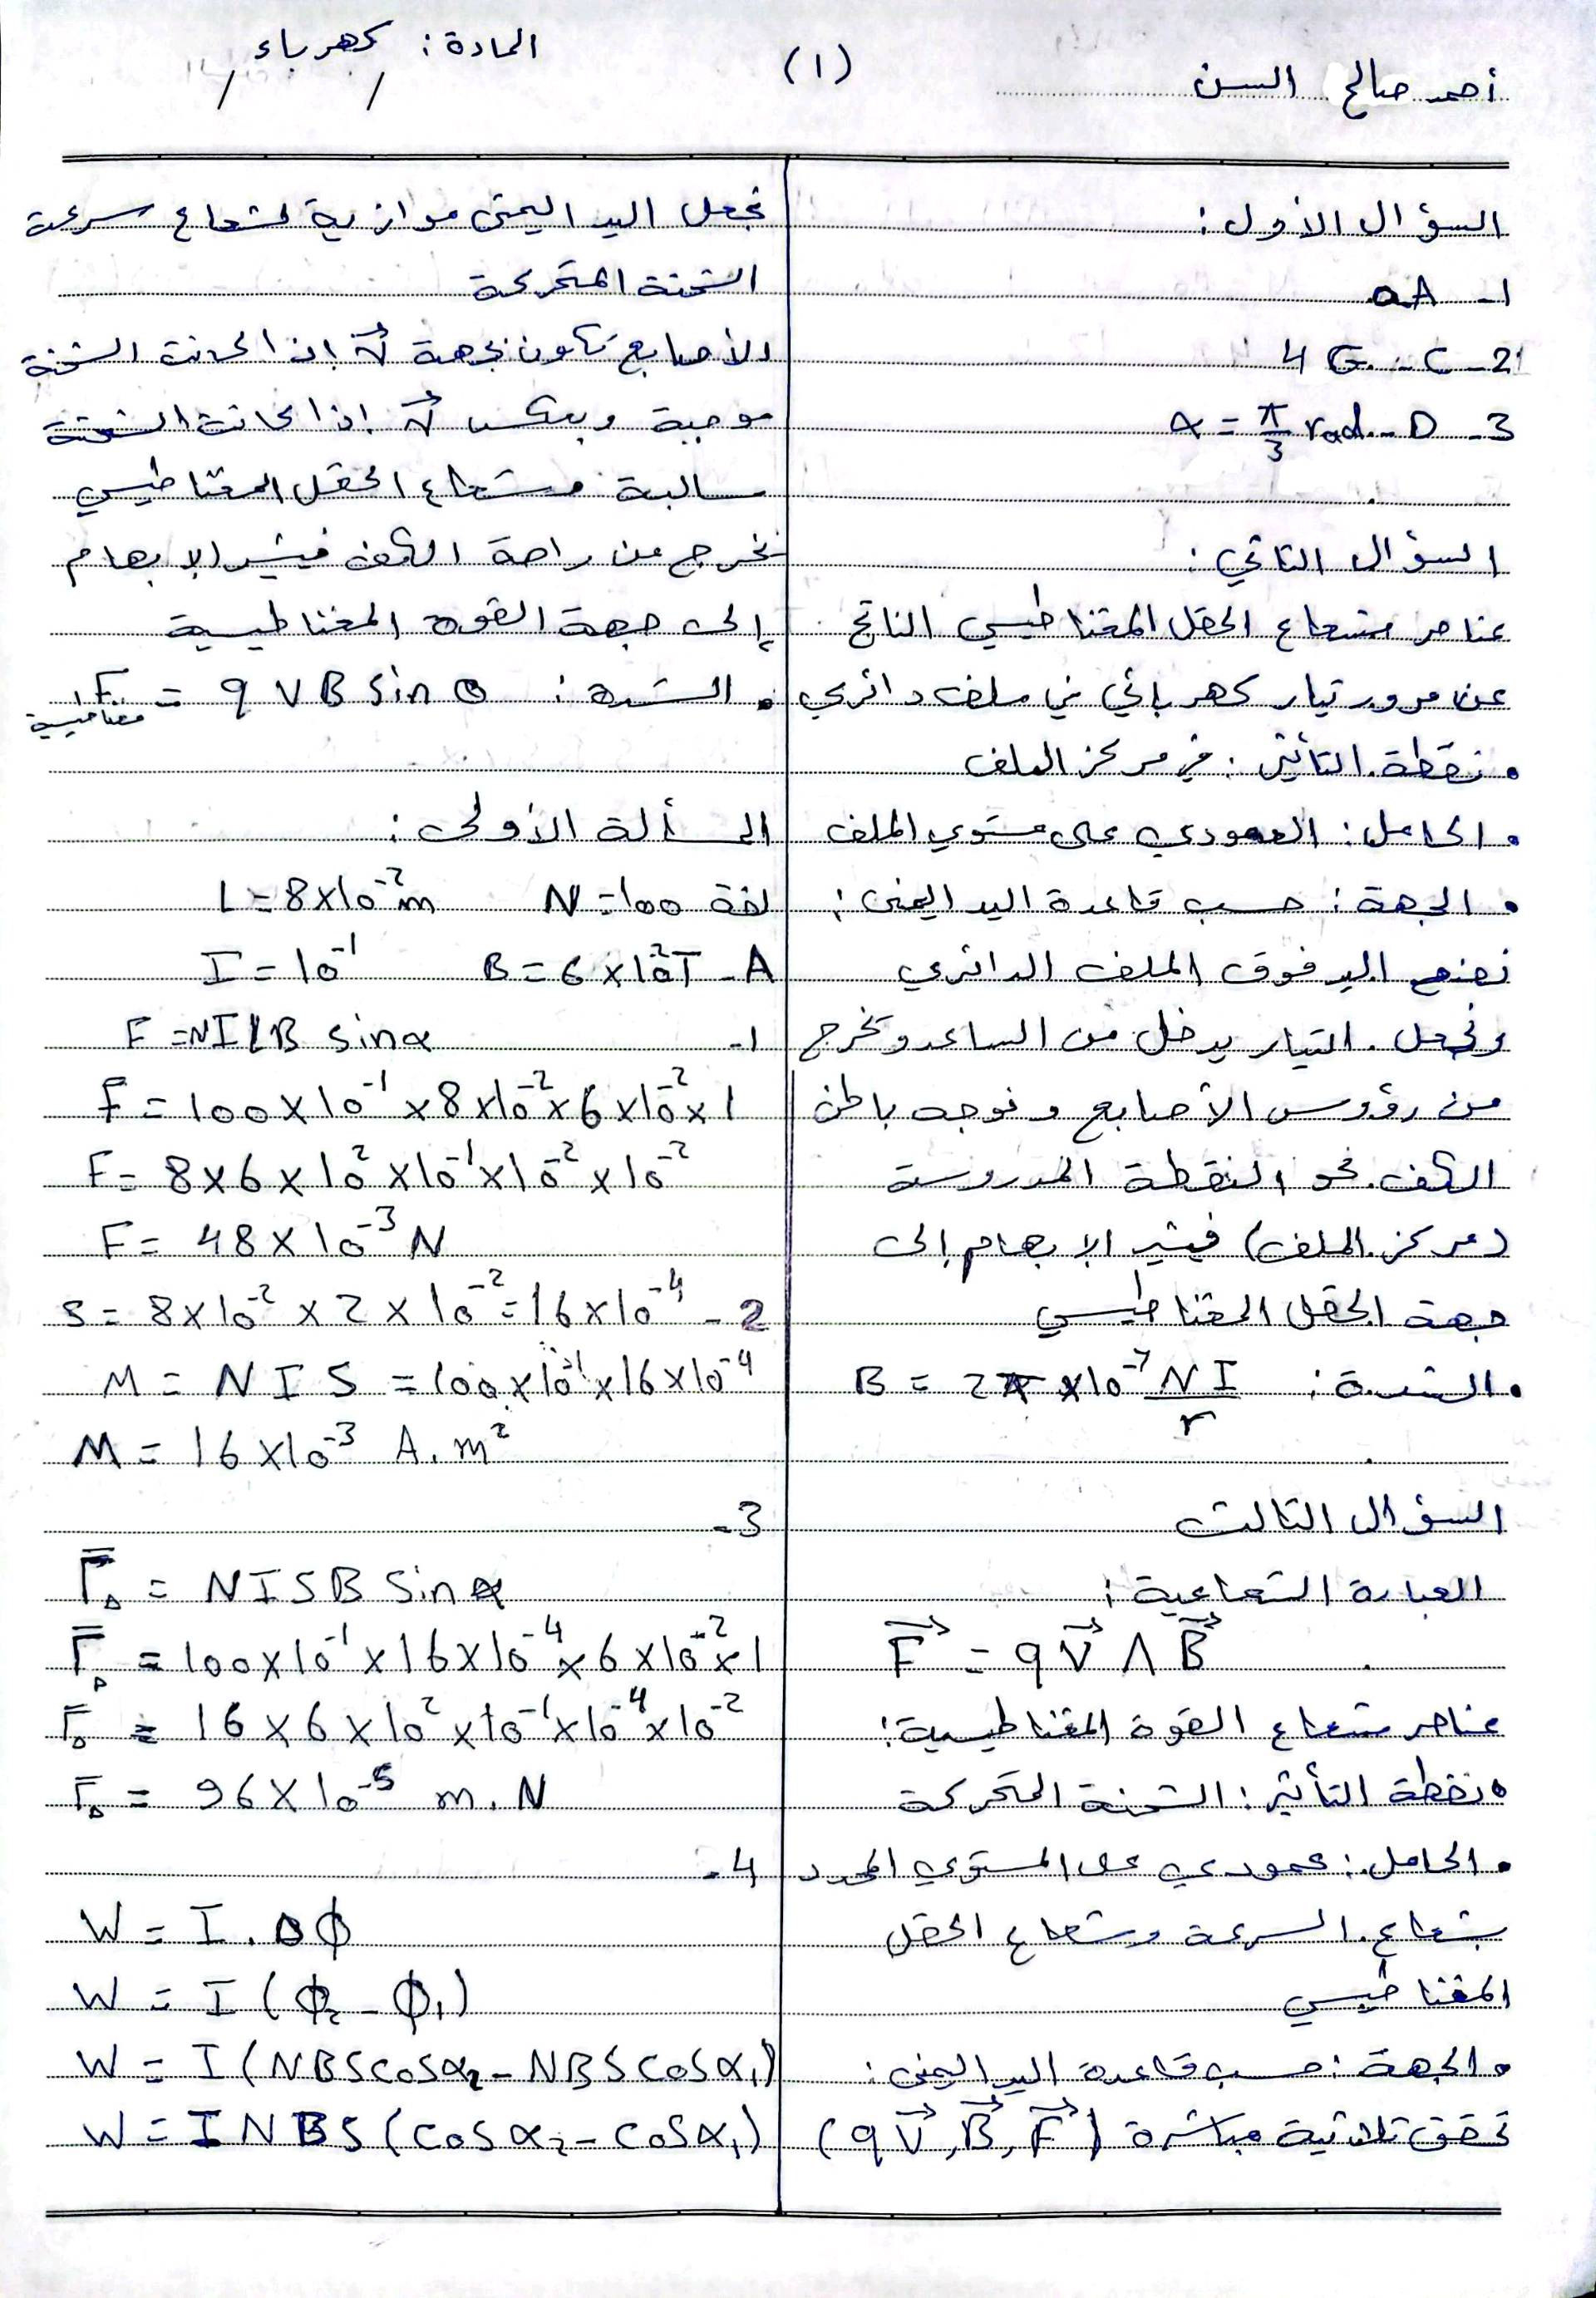 أحمد صالح السن
(١)
المادة: كهرباء
السؤال الأول:
1- A
2- C - 4 G
3- D - α = π/3 rad
السؤال الثاني:
عناصر شعاع الحقل المغناطيسي الناتج
عن مرور تيار كهربائي في ملف دائري
• نقطة التأثير: في مركز الملف
• الحامل: العمودي على مستوي الملف
• الجهة: حسب قاعدة اليد اليمنى:
نضع اليد فوق الملف الدائري
ونجعل التيار يدخل من الساعد وتخرج
من رؤوس الأصابع ونوجه باطن
الكف نحو النقطة المدروسة
(مركز الملف) فيشير الإبهام إلى
جهة الحقل المغناطيسي
• الشدة: B = 2π × 10⁻⁷ NI/r
السؤال الثالث
العبارة الشعاعية:
F⃗ = qV⃗ Λ B⃗
عناصر شعاع القوة المغناطيسية:
• نقطة التأثير: الشحنة المتحركة
• الحامل: عمودي على المستوي المحدد
بشعاع السرعة وشعاع الحقل
المغناطيسي
• الجهة: حسب قاعدة اليد اليمنى:
تحقق ثلاثية مباشرة (qV⃗, B⃗, F⃗)
نجعل اليد اليمنى موازية لشعاع سرعة
الشحنة المتحركة
الأصابع تكون بجهة V⃗ إذا كانت الشحنة
موجبة وبعكس V⃗ إذا كانت الشحنة
سالبة وشعاع الحقل المغناطيسي
يخرج من راحة الكف فيشير الإبهام
إلى جهة القوة المغناطيسية
• الشدة: F مغناطيسية = q V B sin θ
المسألة الأولى:
N = 100 لفة L = 8×10⁻² m
B = 6 × 10⁻² T - A I = 10⁻¹
1- F = NILB sin α
F = 100 × 10⁻¹ × 8 × 10⁻² × 6 × 10⁻² × 1
F = 8 × 6 × 10² × 10⁻¹ × 10⁻² × 10⁻²
F = 48 × 10⁻³ N
2- S = 8 × 10⁻² × 2 × 10⁻² = 16 × 10⁻⁴
M = N I S = 100 × 10⁻¹ × 16 × 10⁻⁴
M = 16 × 10⁻³ A.m²
3-
Γ̄Δ = NISB sin α
Γ̄Δ = 100 × 10⁻¹ × 16 × 10⁻⁴ × 6 × 10⁻² × 1
Γ̄Δ = 16 × 6 × 10² × 10⁻¹ × 10⁻⁴ × 10⁻²
Γ̄Δ = 96 × 10⁻⁵ m.N
4-
W = I . ΔΦ
W = I (Φ₂ - Φ₁)
W = I (NBS cos α₂ - NBS cos α₁)
W = INBS (cos α₂ - cos α₁)